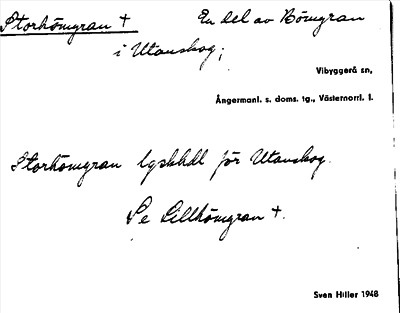 Storhömyran + En del av Bömyran
i Utanskog;
Vibyggerå sn,
Ångermanl. s. doms. tg., Västernorrl. l.
Storhömyran lgskkdl för Utanskog.
Se Lillhömyran +.
Sven Hiller 1948